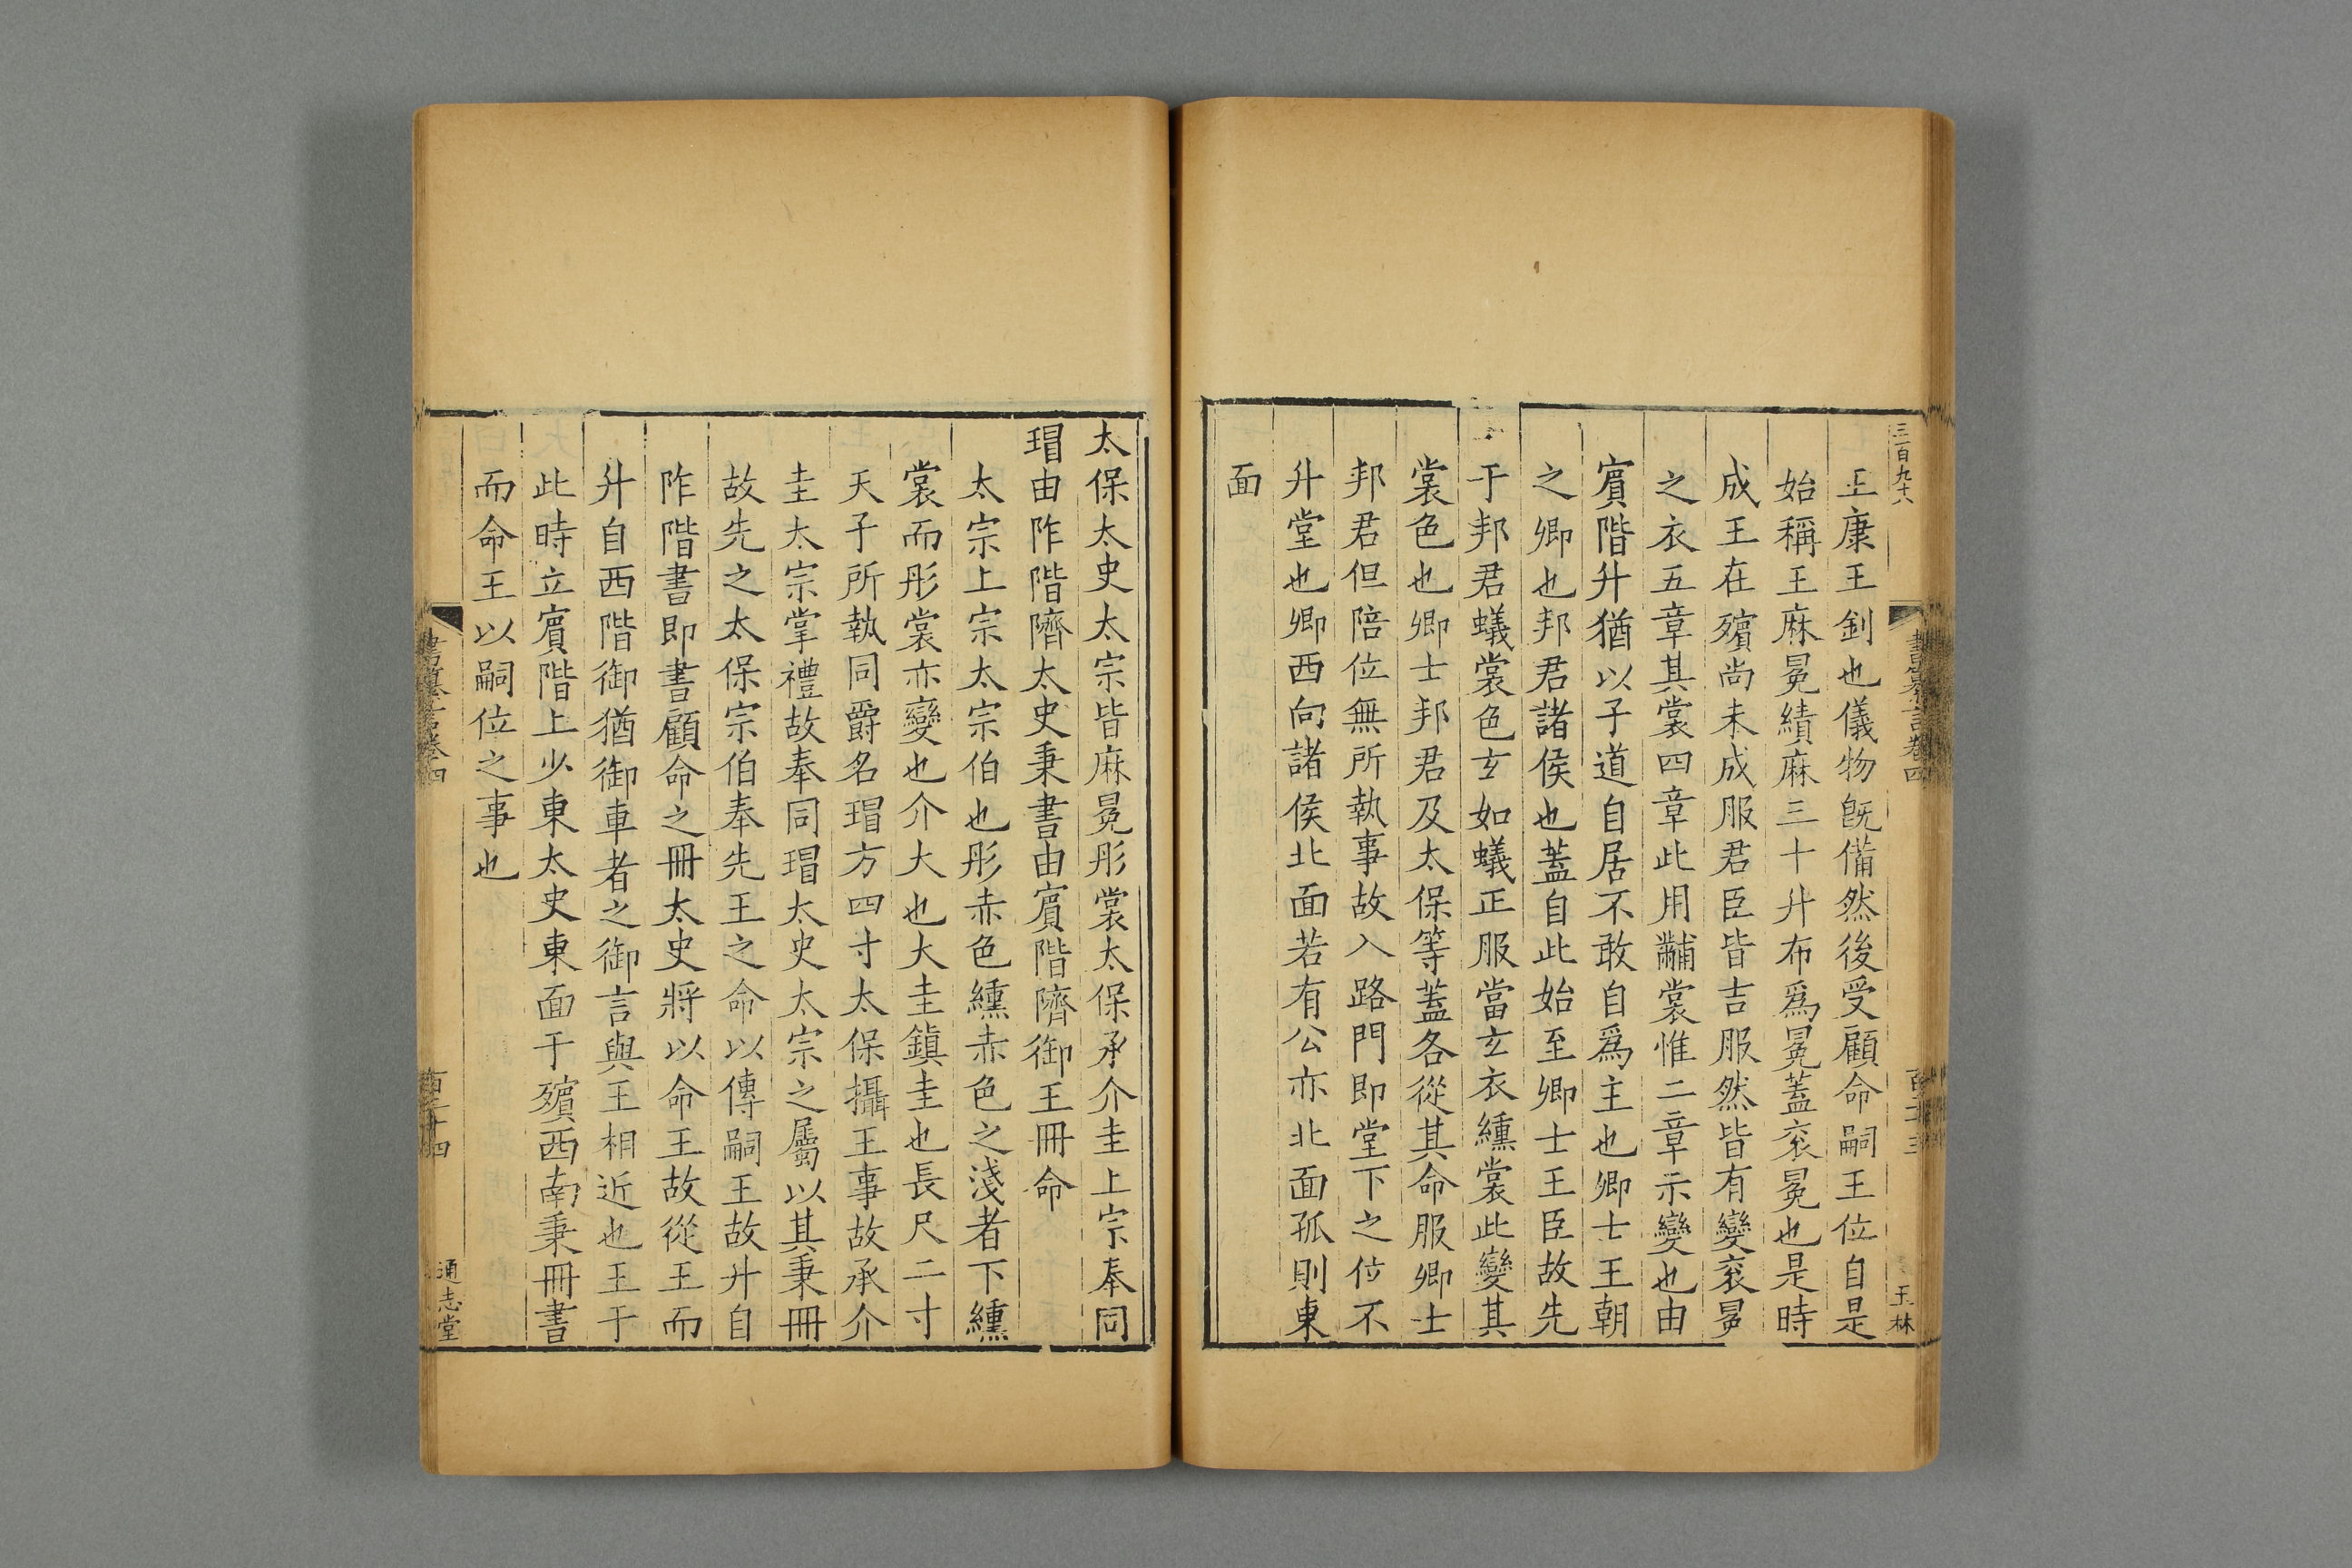 三百九十八
王康王釗也儀物旣備然後受顧命嗣王位自是
始稱王麻冕績麻三十升布爲冕蓋衮冕也是時
成王在殯尚未成服君臣皆吉服然皆有變衮冕
之衣五章其裳四章此用黼裳惟二章示變也由
賓階升猶以子道自居不敢自爲主也卿士王朝
之卿也邦君諸侯也蓋自此始至卿士王臣故先
于邦君蟻裳色玄如蟻正服當玄衣纁裳此變其
裳色也卿士邦君及太保等蓋各從其命服卿士
邦君但陪位無所執事故入路門即堂下之位不
升堂也卿西向諸侯北面若有公亦北面孤則東
面
書纂言卷四
玉林
太保太史太宗皆麻冕彤裳太保承介圭上宗奉同
瑁由阼階隮太史秉書由賓階隮御王冊命
太宗上宗太宗伯也彤赤色纁赤色之淺者下纁
裳而彤裳亦變也介大也大圭鎮圭也長尺二寸
天子所執同爵名瑁方四寸太保攝王事故承介
圭太宗掌禮故奉同瑁太史太宗之屬以其秉冊
故先之太保宗伯奉先王之命以傳嗣王故升自
阼階書即書顧命之冊太史將以命王故從王而
升自西階御猶御車者之御言與王相近也王于
此時立賓階上少東太史東面于殯西南秉冊書
而命王以嗣位之事也
書纂言卷四
通志堂